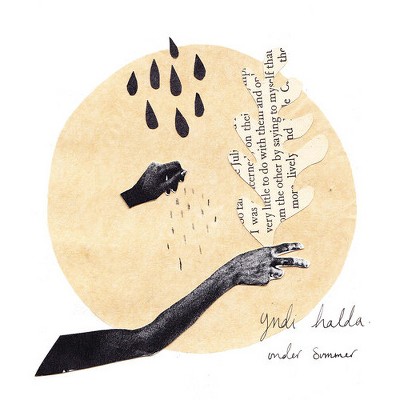 I was
on the
very little to do with them and
the other by saying to myself
more lively
the
yndi halda.
under summer